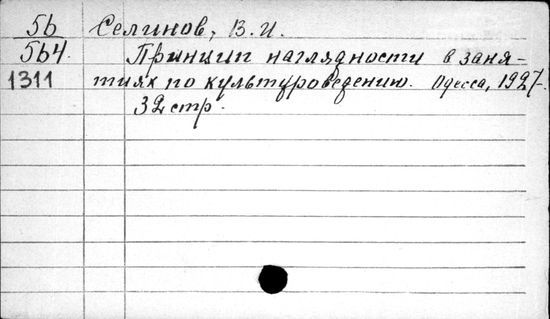 5б Селинов, В. И.
5б4. Принцип наглядности в заня-
1311 тиях по культуроведению. Одесса, 1927.
32 стр.